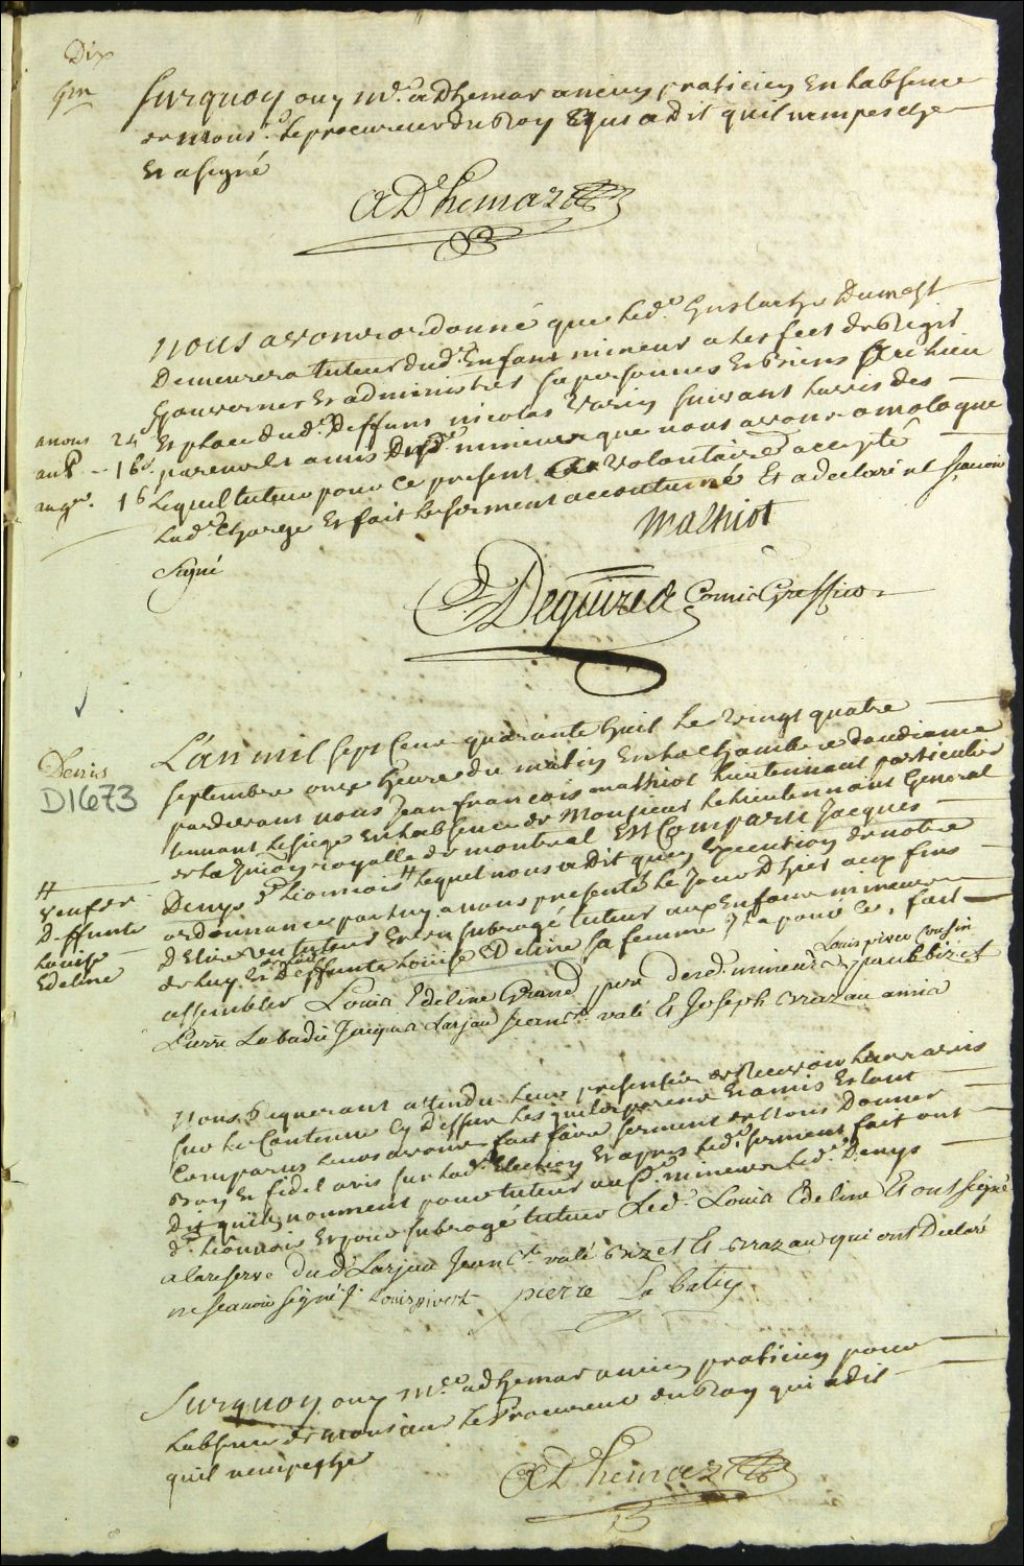 Dix
Surquoy ouy Me. adhemar ancien praticien En Labsence
de Mons.r Le procureur du Roy qui a dit quil nempesche
Et a signé
ADhemar
Nous avons ordonné que Led. Eustache Dumest
Demeurera tuteur dud. Enfant mineur a Leffect de Regir
Gouverner Et administrer sa personnes Et Biens au Lieu
Et place dud. Deffunt nicolas Varin suivant Lavis des
parens Et amis Dud. mineur que nous avons omologué
Lequel tuteur pour ce present a volontaire accepté
Lad. Charge Et fait Le serment accoutumé Et a declaré ne scavoir
Signé
anous 24
auP. 16
augr. 16
Mathiot
Deguire Comis Greffier
L'an mil sept Cent quarante huit Le vingt quatre
septembre onze heure du matin En La Chambre daudiance
pardevant nous Jean francois mathiot Lieutennant particulier
tennant Le siege En Labsence de Monsieur Le Lieutennant General
de La Jurisdn royalle de montreal Est Comparu Jacques
Denys St Lionnois Lequel nous a dit qu'en Execution de notre
ordonnance par Luy a nous presenté Le Jour Dhier aux fins
D Elire un tuteur Et un subrogé tuteur aux Enfans mineurs
de Luy Et de Deffunte Louise Edeline sa femme Il a pour ce, fait
assembler Louis Edeline Grand pere desd. mineurs Louis piver cousin paul bizet
Pierre Labadie Jacques Larjau francois valé Et Joseph brazau amis
Denis
D1673
veuf de
Deffunte
Louise
Edeline
Nous Requerant attendu Leur presence de Recevoir Leurs avis
sur Le Contenu Cy Dessus Lesquels parens Et amis Estant
Comparus Leurs avons fait faire serment de Nous Donner
Bon Et fidel avis sur Lad. Election Et apres Led. serment fait ont
Dit quils nomment pour tuteur auxd. mineurs Led. Denys
St Lionnois Et pour subrogé tuteur Led. Louis Edeline Et ont signé
a La reserve dud Larjau Jean Bte valé bizet Et brazau qui ont Declaré
ne scavoir signé /. Louis pivert pierre La batiy
Surquoy ouy Me. adhemar ancien praticien pour
Labsence de Monsieur Le Procureur du Roy qui a dit
quil nempesche
ADhemar